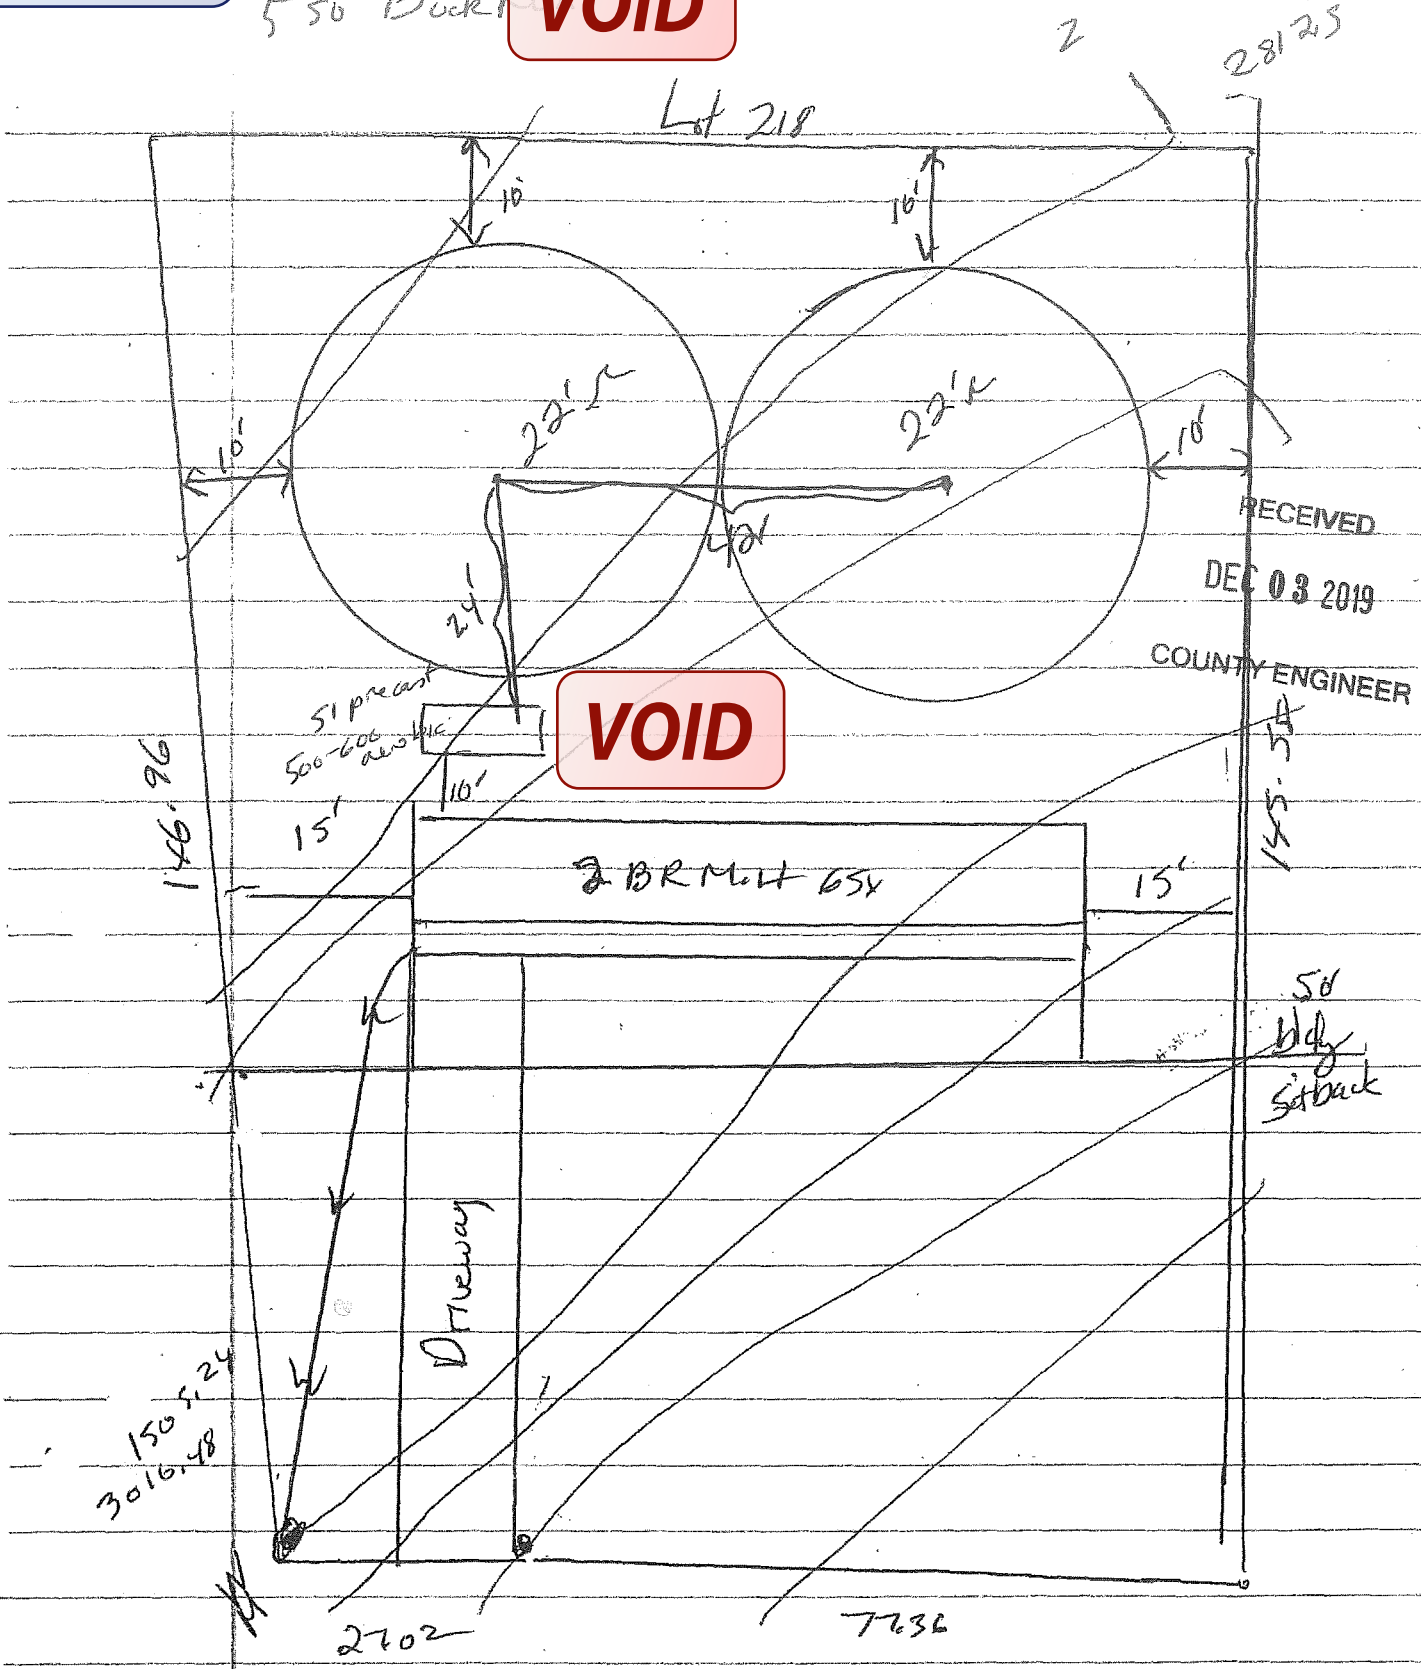 550 Buck
VOID
2
28125
Lot 218
10'
10'
22' r
22' r
10'
10'
42'
RECEIVED
DEC 03 2019
COUNTY ENGINEER
24'
5' precast
500-600
aerobic
VOID
10'
146.96
15'
2 BR M.H 65x
15'
145.55
50'
bldg
Setback
Driveway
1505.24
3016.48
27.02
77.36